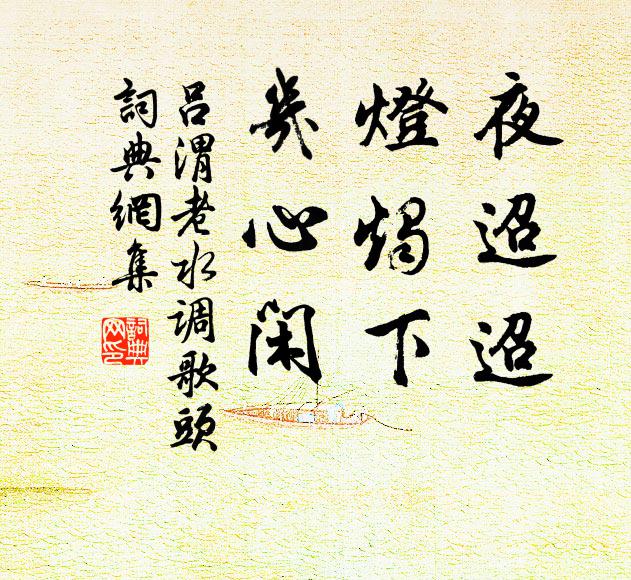 夜迢迢
燈燭下
幾心閑
吕渭老水调歌頭
詞典網集
詞典
网印